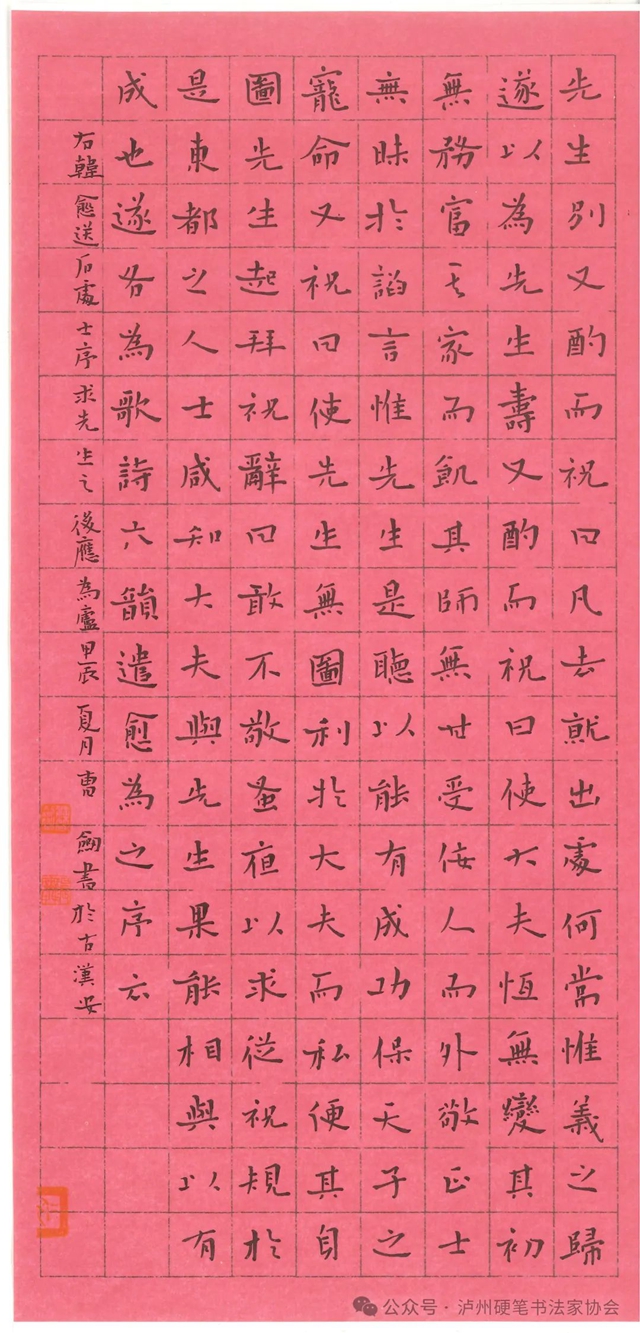 先生別又酌而祝曰凡去就出處何常惟義之歸
遂以為先生壽又酌而祝曰使大夫恆無變其初
無務富其家而飢其師無甘受佞人而外敬正士
無昧於諂言惟先生是聽以能有成功保天子之
寵命又祝曰使先生無圖利於大夫而私便其自
圖先生起拜祝辭曰敢不敬蚤夜以求從祝規於
是東都之人士咸知大夫與先生果能相與以有
成也遂各為歌詩六韻遣愈為之序云
右韓愈送石處士序求先生之後應為盧甲辰夏月曹劍書於古漢安
公众号·泸州硬笔书法家协会